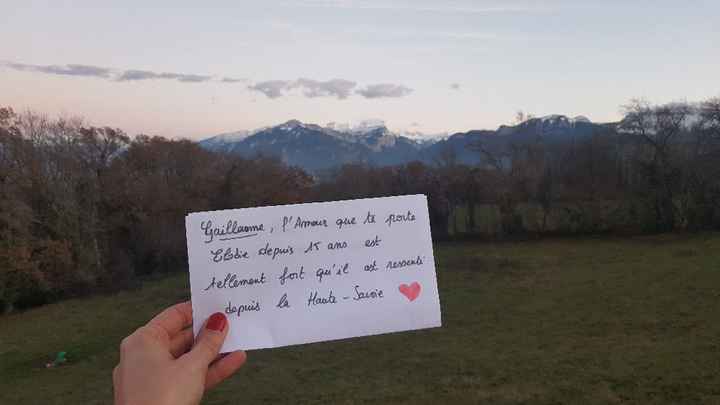 Guillaume, l'Amour que te porte
Elodie depuis 15 ans est
tellement fort qu'il est ressenti
depuis la Haute-Savoie